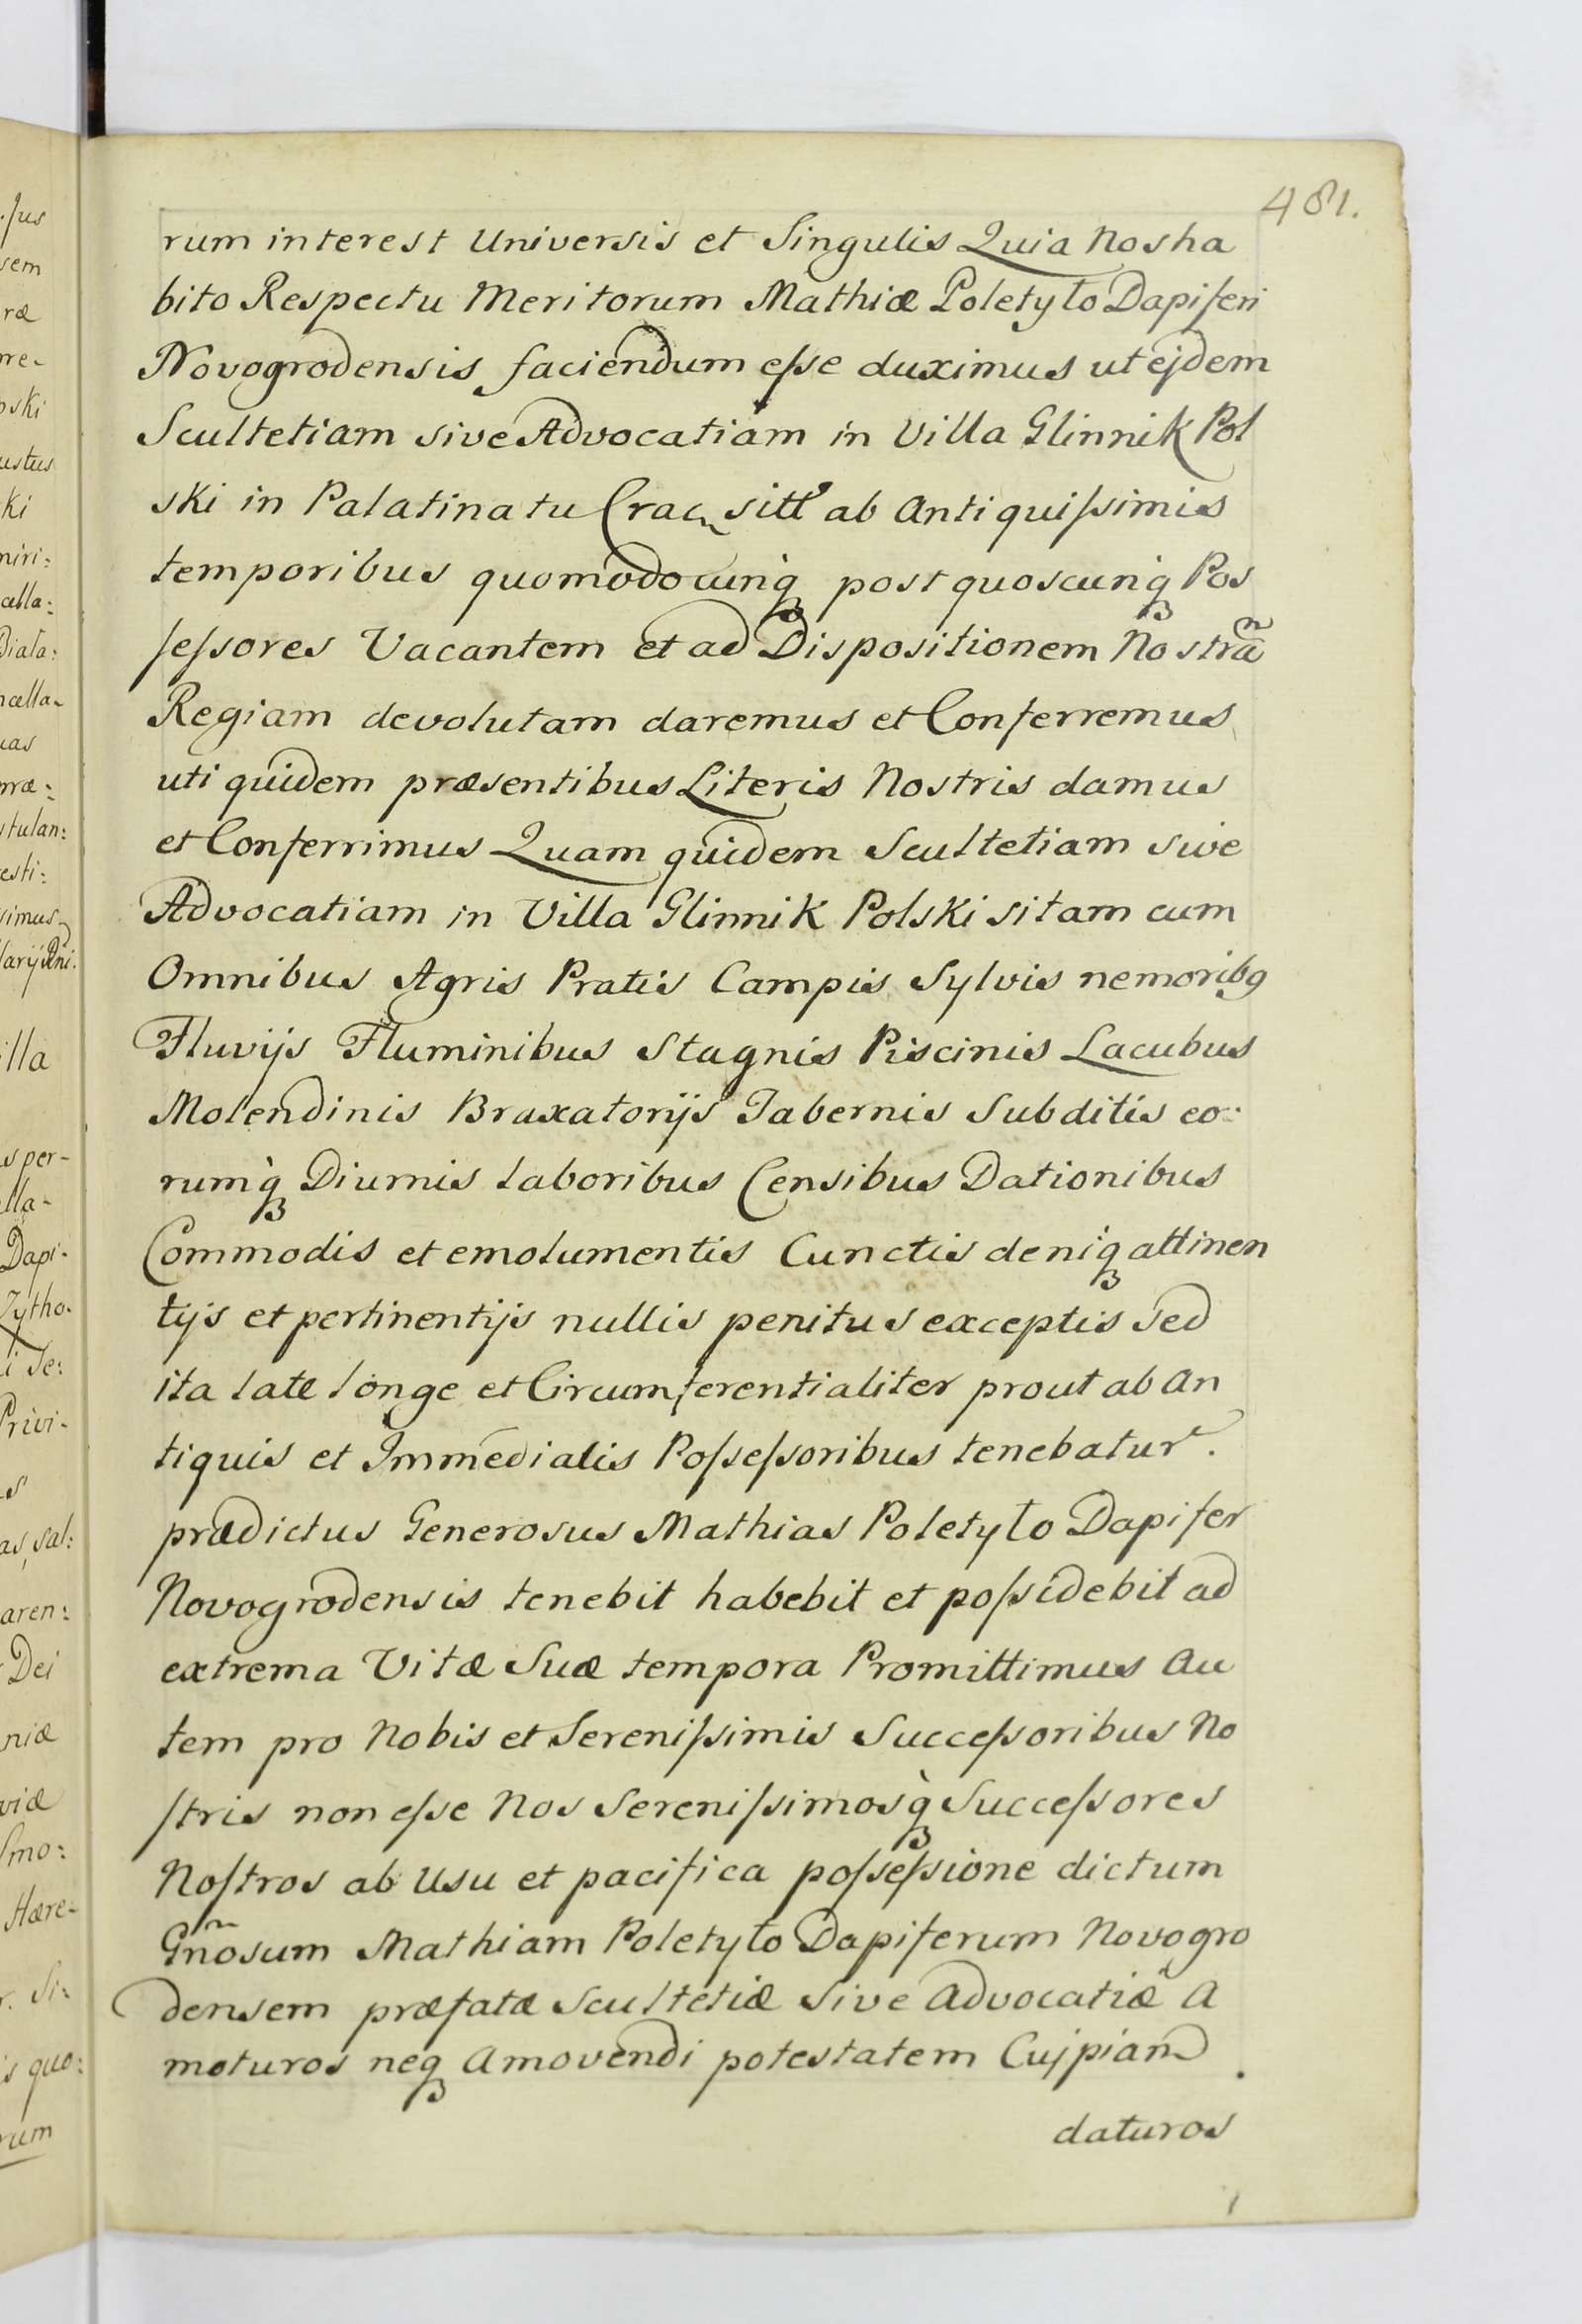 481.
rum interest Universis et Singulis Quia Nos ha
bito Respectu Meritorum Mathiæ Poletyło Dapiferi
Novogrodensis faciendum eſse duximus ut ejdem
Scultetiam sive Advocatiam in Villa Glinnik Pol
ski in Palatinatu Crac sitt ab Antiquiſsimis
temporibus quomodocunq post quoscunq Pos
ſeſsores Vacantem et ad Dispositionem Nostrã
Regiam devolutam daremus et Conferremus
uti quidem præsentibus Literis Nostris damus
et Conferrimus Quam quidem Scultetiam sive
Advocatiam in Villa Glinnik Polski sitam cum
Omnibus Agris Pratis Campis Sylvis nemorib9
Fluvijs Fluminibus Stagnis Piscinis Lacubus
Molendinis Braxatorijs Tabernis Subditis eo:
rumq Diurnis laboribus Censibus Dationibus
Commodis et emolumentis Cunctis deniq attinen
tijs et pertinentijs nullis penitus exceptis Sed
ita late longe et Circumferentialiter prout ab An
tiquis et Immediatis Poſseſsoribus tenebatur.
prædictus Generosus Mathias Poletyło Dapifer
Novogrodensis tenebit habebit et poſsidebit ad
extrema Vitæ Suæ tempora Promittimus Au
tem pro Nobis et Sereniſsimis Succeſsoribus No
ſtris non eſse Nos Sereniſsimosq Succeſsores
Noſtros ab Usu et pacifica poſseſsione dictum
Gñosum Mathiam Poletyło Dapiferum Novogro
densem præfatæ Scultetiæ Sive Advocatiæ A
moturos neq Amovendi potestatem Cujpiam
daturos